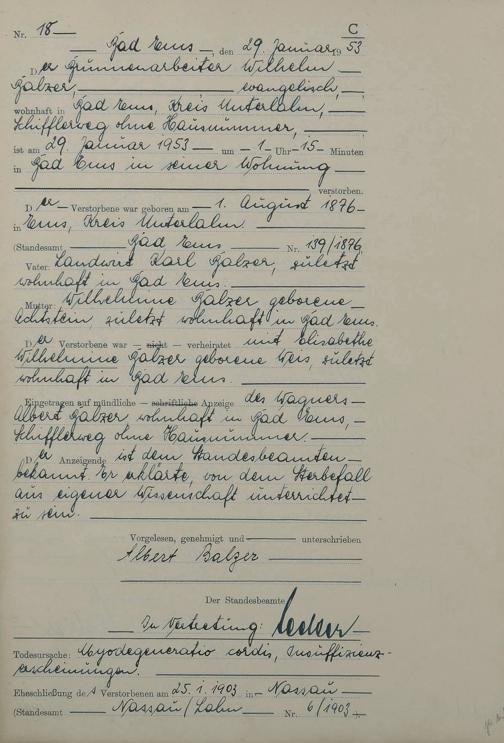 Nr. 18 C
Bad Ems, den 29. Januar 1953
Der Brunnenarbeiter Wilhelm
Balzer, evangelisch,
wohnhaft in Bad Ems, Kreis Unterlahn,
Schifflerweg ohne Hausnummer,
ist am 29. Januar 1953 um 1 Uhr 15 Minuten
in Bad Ems in seiner Wohnung
verstorben.
Der Verstorbene war geboren am 1. August 1876
in Ems, Kreis Unterlahn.
(Standesamt Bad Ems Nr. 139/1876
Vater: Landwirt Karl Balzer, zuletzt
wohnhaft in Bad Ems.
Mutter: Wilhelmine Balzer geborene
Achtstein, zuletzt wohnhaft in Bad Ems.
Der Verstorbene war — nicht — verheiratet mit Elisabethe
Wilhelmine Balzer geborene Weis, zuletzt
wohnhaft in Bad Ems.
Eingetragen auf mündliche — schriftliche Anzeige des Wagners
Albert Balzer wohnhaft in Bad Ems,
Schifflerweg ohne Hausnummer.
Der Anzeigende ist dem Standesbeamten
bekannt. Er erklärte, von dem Sterbefall
aus eigener Wissenschaft unterrichtet
zu sein.
Vorgelesen, genehmigt und unterschrieben
Albert Balzer
Der Standesbeamte
In Vertretung:
Todesursache: Myodegeneratio cordis, Insuffizienz-
erscheinungen.
Eheschließung des Verstorbenen am 25.1.1903 in Nassau
(Standesamt Nassau/Lahn Nr. 6/1903